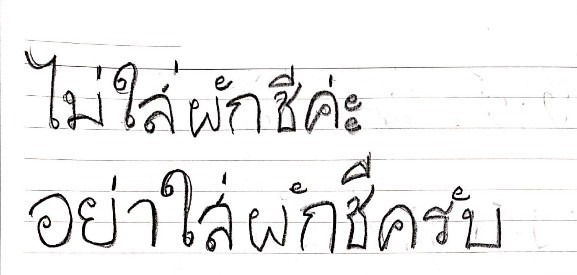 ไม่ใส่ผักชีค่ะ
อย่าใส่ผักชีครับ